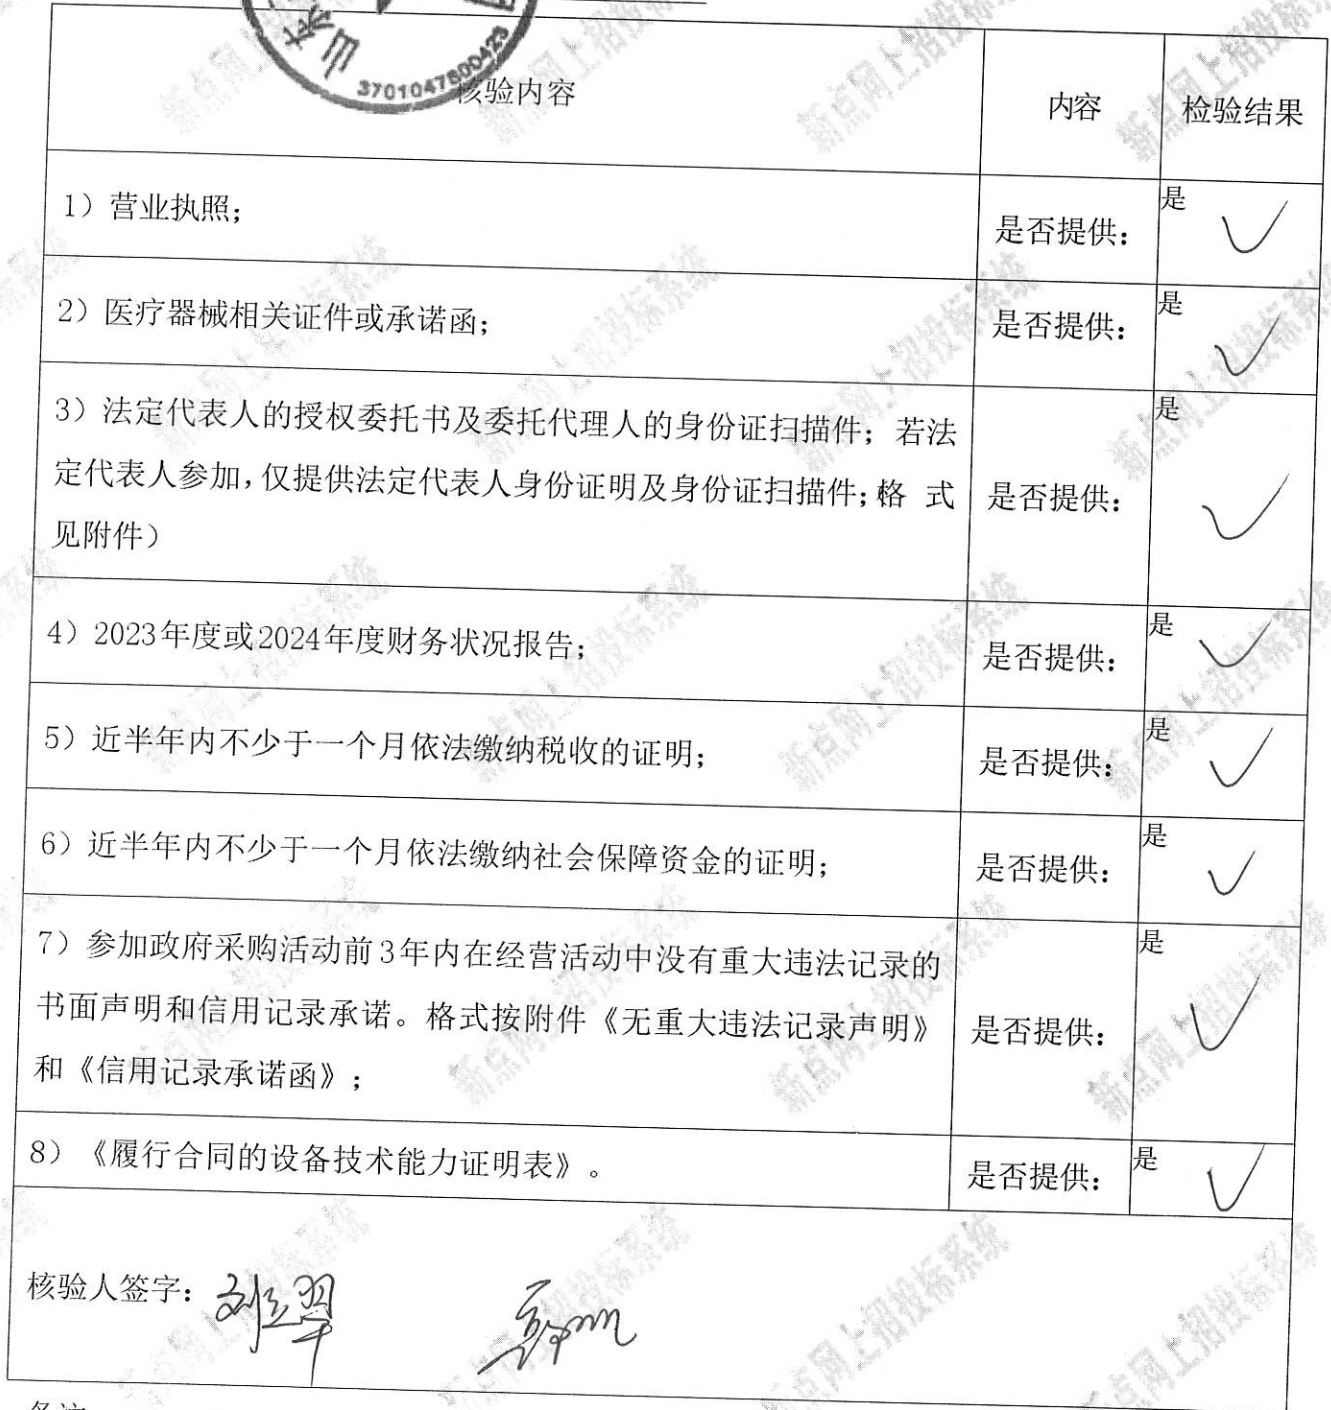 山东
3701047800423
核验内容
内容
检验结果
1）营业执照；
是否提供：
是
2）医疗器械相关证件或承诺函；
是否提供：
是
3）法定代表人的授权委托书及委托代理人的身份证扫描件；若法
定代表人参加，仅提供法定代表人身份证明及身份证扫描件；格 式
见附件）
是否提供：
是
4）2023年度或2024年度财务状况报告；
是否提供：
是
5）近半年内不少于一个月依法缴纳税收的证明；
是否提供：
是
6）近半年内不少于一个月依法缴纳社会保障资金的证明；
是否提供：
是
7）参加政府采购活动前3年内在经营活动中没有重大违法记录的
书面声明和信用记录承诺。格式按附件《无重大违法记录声明》
和《信用记录承诺函》；
是否提供：
是
8）《履行合同的设备技术能力证明表》。
是否提供：
是
核验人签字：
新点网上招投标系统